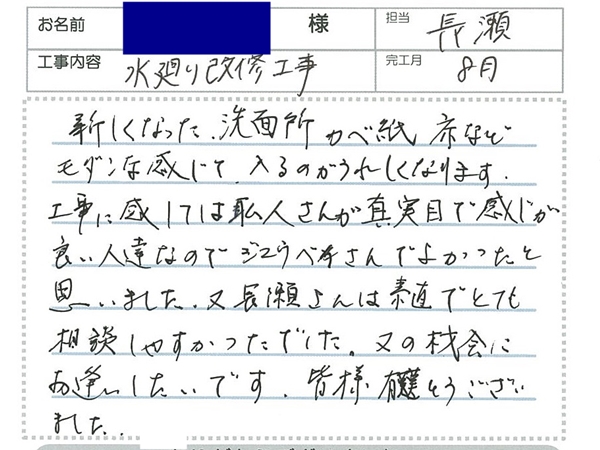 お名前 様 担当 長瀬
工事内容 水廻り改修工事 完工月 8月
新しくなった、洗面所 かべ紙 床など
モダンな感じで 入るのがうれしくなります。
工事に感しては職人さんが真実目で感じが
良い人達なので ジェウベキさんでよかったと
思いました。又 長瀬さんは素直でとても
相談しやすかったでした。又の機会に
お逢いしたいです。皆様 有難そうござい
ました。